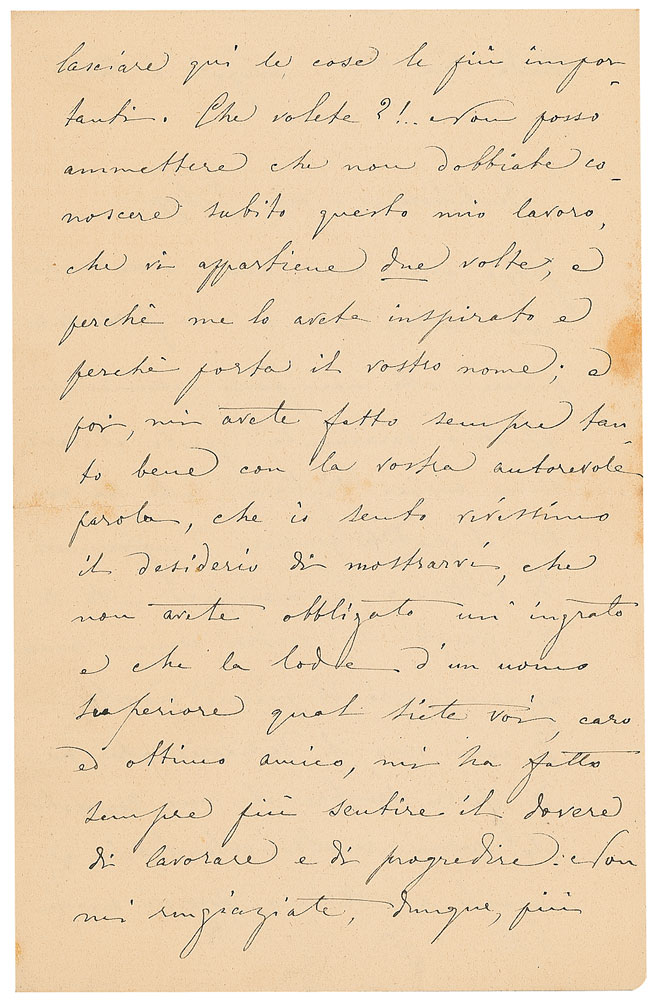 lasciare qui le cose le più impor-
tanti. Che volete?!.. Non posso
ammettere che non dobbiate co-
noscere subito questo mio lavoro,
che vi appartiene due volte, e
perchè me lo avete inspirato e
perchè porta il vostro nome; e
poi, mi avete fatto sempre tan-
to bene con la vostra autorevole
parola, che io sento vivissimo
il desiderio di mostrarvi, che
non avete obbligato un' ingrato
e che la lode d'un uomo
superiore qual siete voi, caro
ed ottimo amico, mi ha fatto
sempre più sentire il dovere
di lavorare e di progredire. Non
mi ringraziate, dunque, più